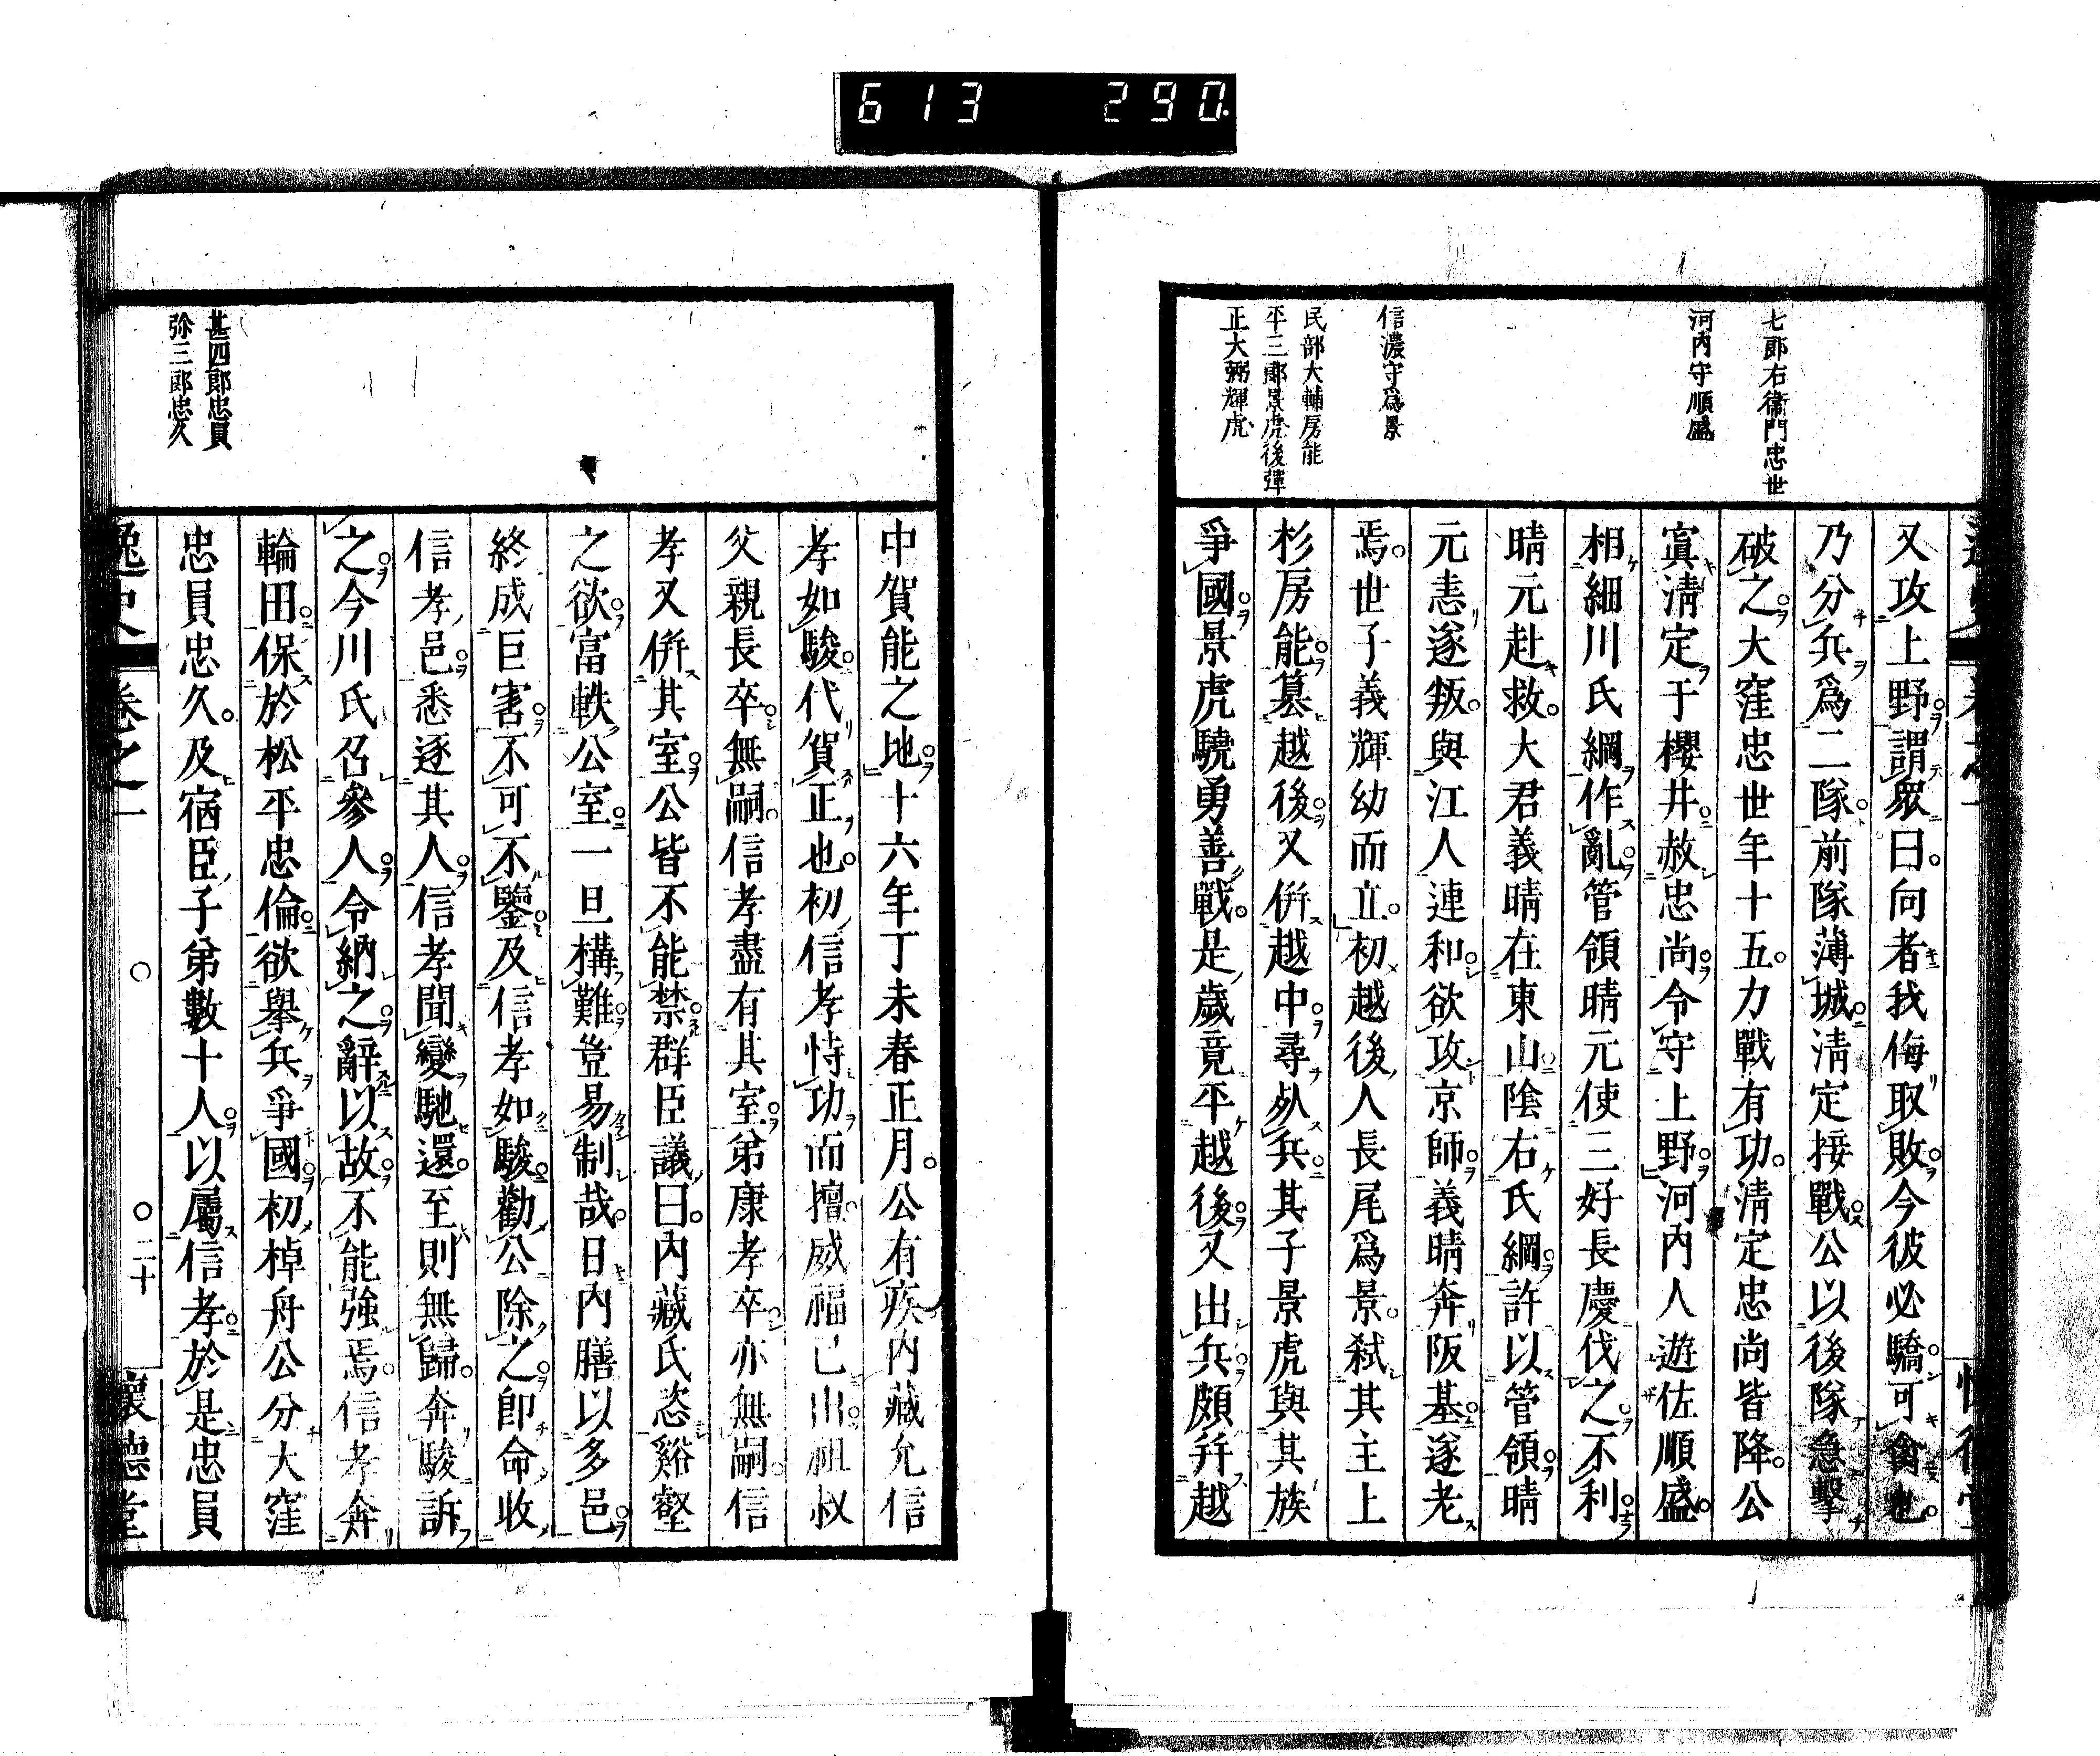 613 290.
七郎右衞門忠世
河内守順盛
信濃守爲景
民部大輔房能
平三郎景虎後彈
正大弼輝虎
又攻上野謂衆曰向者我侮取敗今彼必驕可禽也
乃分兵爲二隊前隊薄城淸定接戰公以後隊急擊
破之大窪忠世年十五力戰有功淸定忠尚皆降公
寘淸定于櫻井赦忠尚令守上野河内人遊佐順盛
相細川氏綱作亂管領晴元使三好長慶伐之不利
晴元赴救大君義晴在東山陰右氏綱許以管領晴
元恚遂叛與江人連和欲攻京師義晴奔阪基遂老
焉世子義輝幼而立初越後人長尾爲景弑其主上
杉房能簒越後又倂越中尋死兵其子景虎與其族
爭國景虎驍勇善戰是歲竟平越後又出兵頗幷越
中賀能之地十六年丁未春正月公有疾内藏允信
孝如駿代賀正也初信孝恃功而擅威福已出祖叔
父親長卒無嗣信孝盡有其室弟康孝卒亦無嗣信
孝又倂其室公皆不能禁群臣議曰内藏氏恣谿壑
之欲富軼公室一旦構難豈易制哉日内膳以多邑
終成巨害不可不鑒及信孝如駿勸公除之卽命收
信孝邑悉逐其人信孝聞變馳還至則無歸奔駿訴
之今川氏召參人令納之辭以故不能強焉信孝奔
輪田保於松平忠倫欲擧兵爭國初棹舟公分大窪
忠員忠久及宿臣子弟數十人以屬信孝於是忠員
甚四郎忠員
弥三郎忠久
逸史 卷之一 ○ ○二十 懷德堂